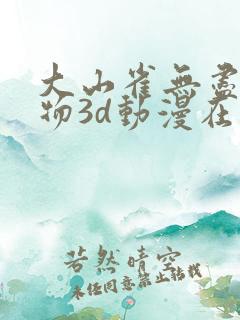 大山雀無盡
物3d動漫在
若然晴空
未任同意禁止轉載